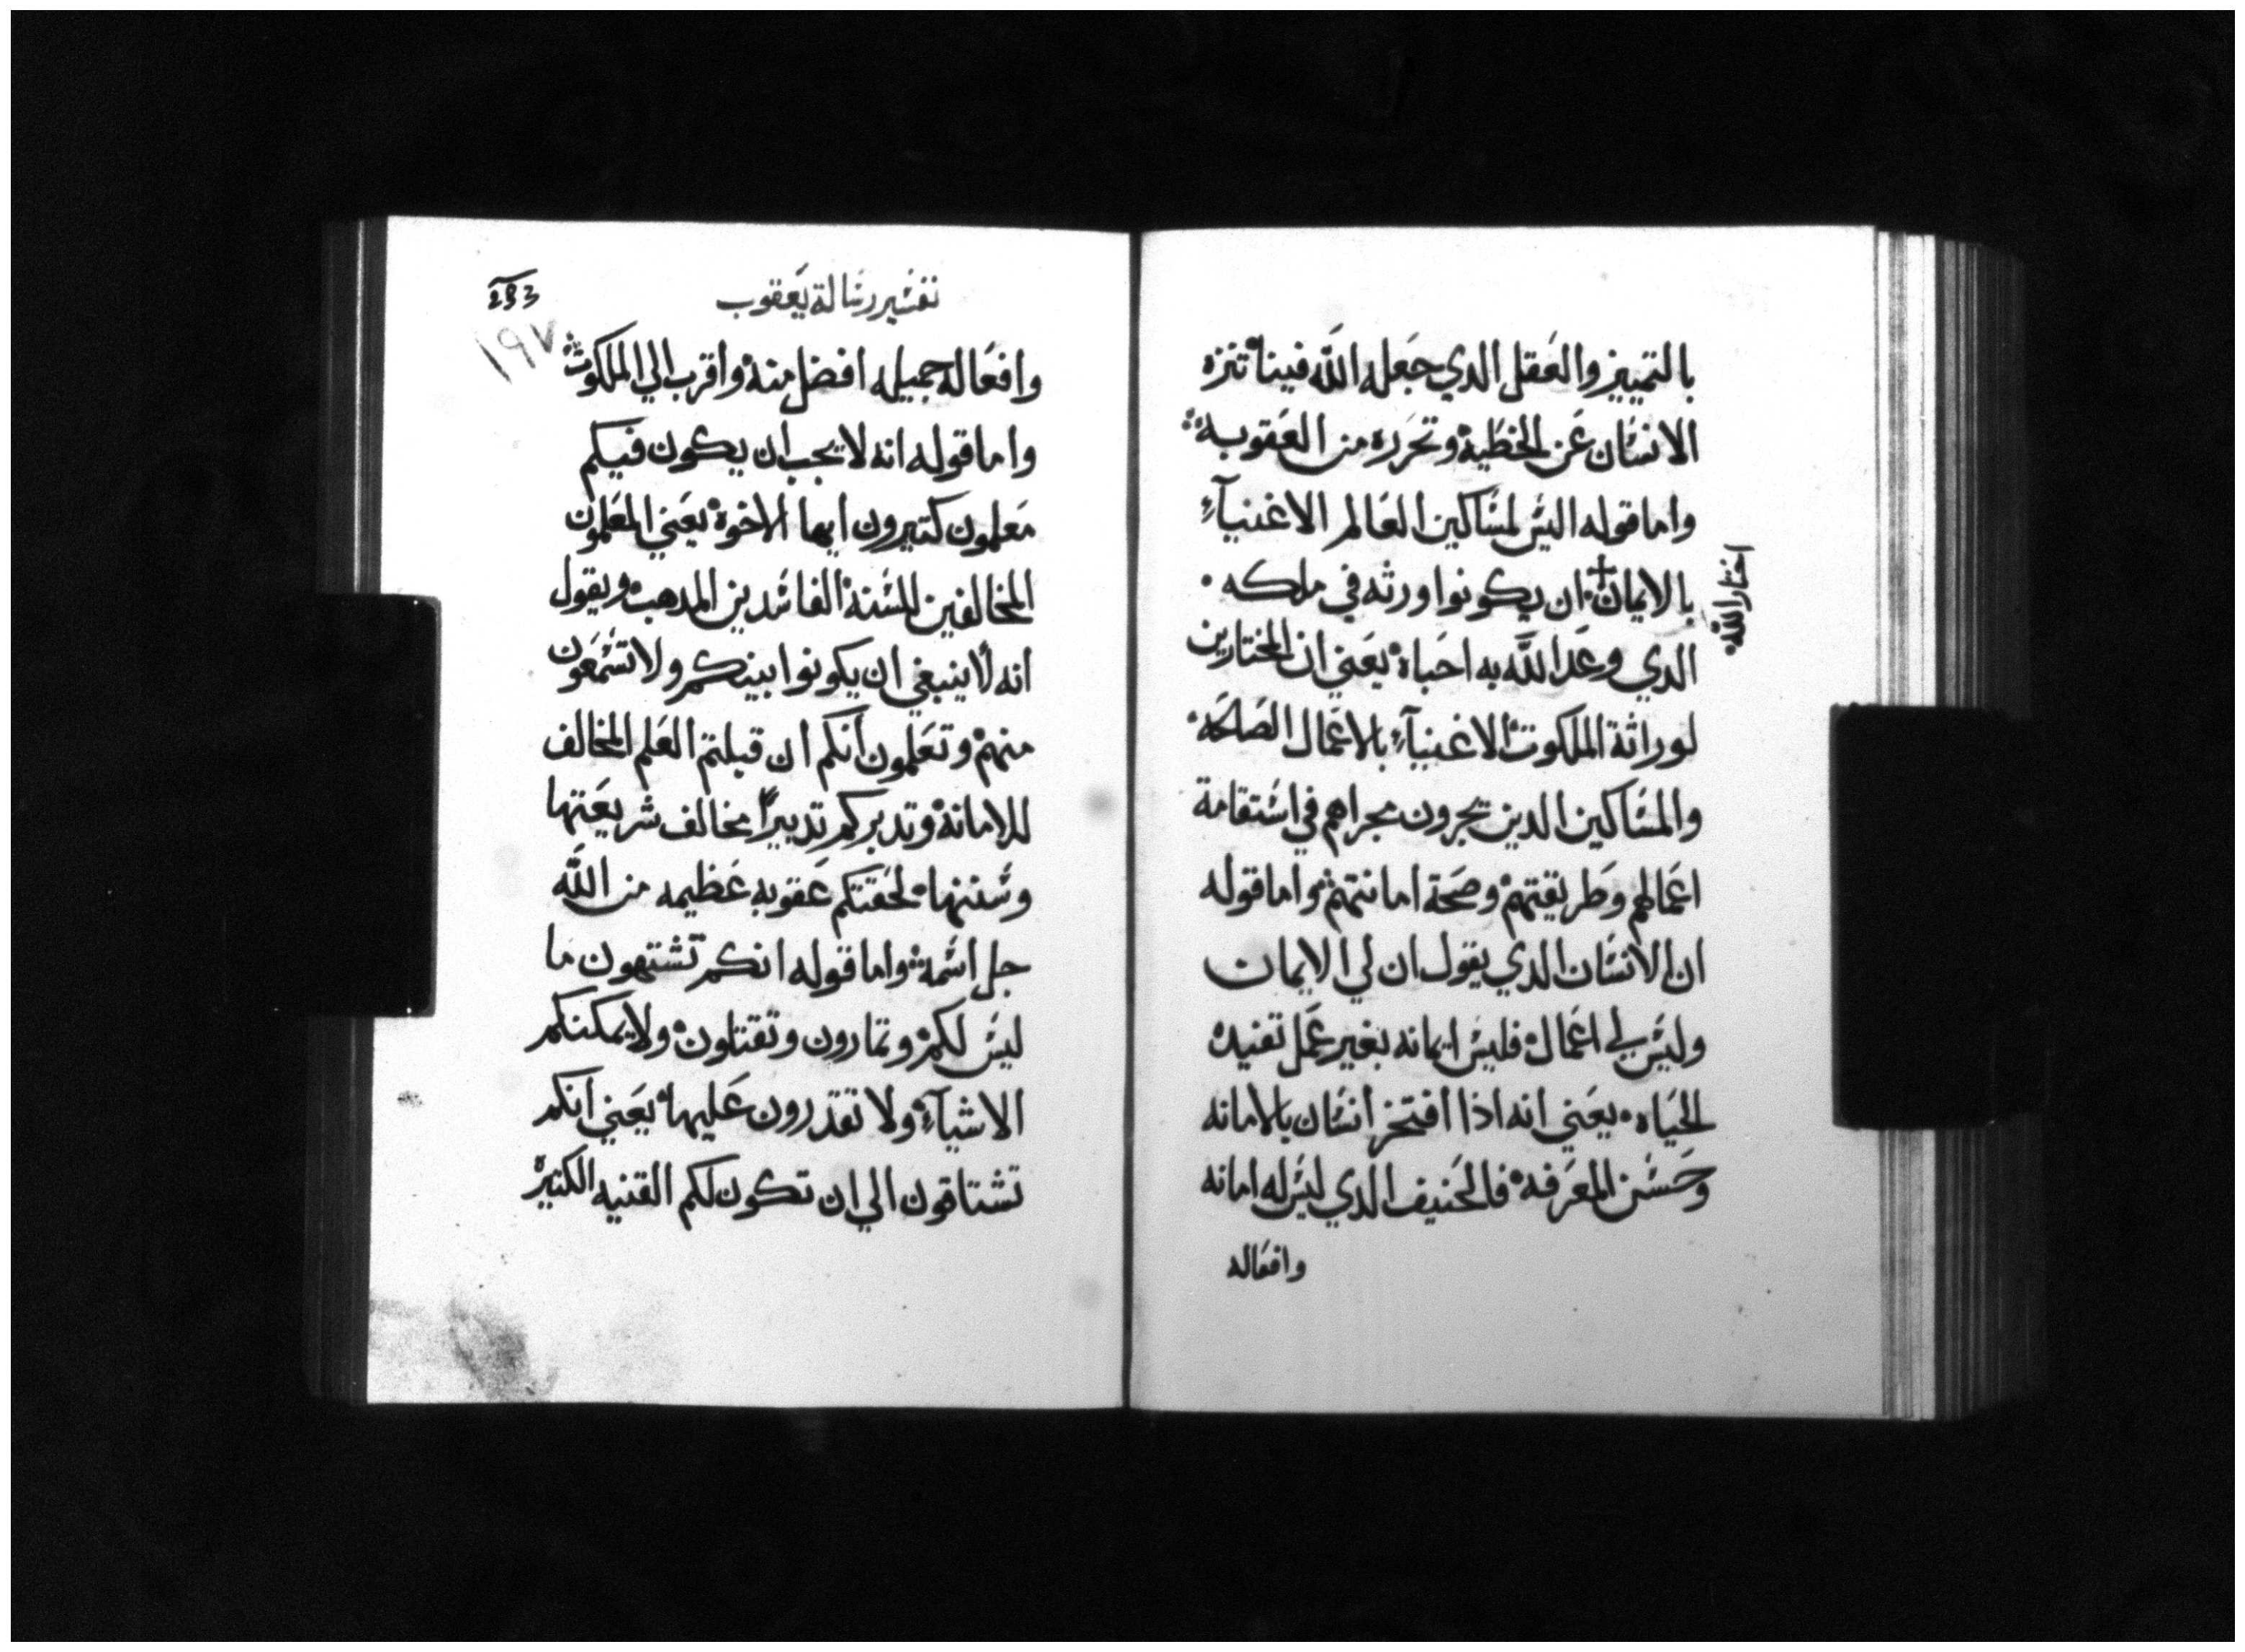 بالتمييز والعقل الدي جعله الله فينا تنزه
الانسان عن الخطية وتحرره من العقوبة
واما قوله اليس لمساكين العالم الاغنيآء
بالايمان ان يكونوا ورثه في ملكه
اختار الله
الدي وعد الله به احباه يعني ان المختارين
لوراثة الملكوت الاغنيآء بالاعمال الصالحه
والمساكين الدين يجرون مجراهم في استقامة
اعمالهم وطريقتهم وصحة امانتهم واما قوله
ان الانسان الدي يقول ان لي الايمان
وليس لي اعمال فليس ايمانه بغير عمل تفيده
الحياه يعني انه اذا افتخر انسان بالامانه
وحسن المعرفه فالحنيف الدي ليس له امانه
وافعاله
تفسير رسالة يعقوب
293
١٩٧
وافعاله جميله افضل منه واقرب الي الملكوت
واما قوله انه لا يجب ان يكون فيكم
معلمون كتيرون ايها الاخوة يعني المعلمون
المخالفين للسنة الفاسدين المدهب ويقول
انه لا ينبغي ان يكونوا بينكم ولا تسمعون
منهم وتعلمون انكم ان قبلتم العلم المخالف
للامانة وتدبركم تدبيرًا مخالف شريعتها
وسننها لحقتكم عقوبه عظيمه من الله
جل اسمه واما قوله انكم تشتهون ما
ليس لكم وتمارون وتقتلون ولا يمكنكم
الاشيآء ولا تقدرون عليها يعني انكم
تشتاقون الي ان تكون لكم القنيه الكتير